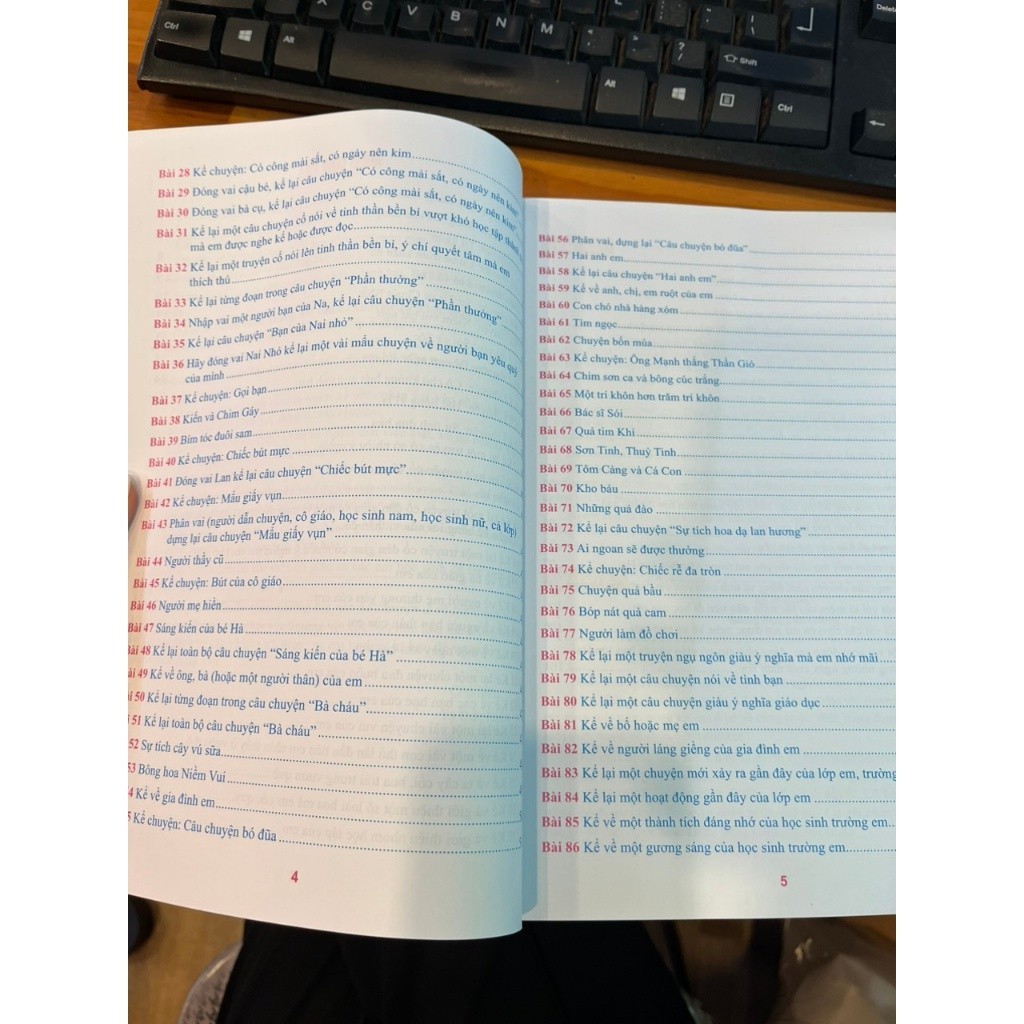 Ctrl
Alt
X
C
V
B
N
M
Alt
Shift
Ctrl
Delete
Bài 28 Kể chuyện: Có công mài sắt, có ngày nên kim
Bài 29 Đóng vai cậu bé, kể lại câu chuyện “Có công mài sắt, có ngày nên kim”
Bài 30 Đóng vai bà cụ, kể lại câu chuyện “Có công mài sắt, có ngày nên kim”
Bài 31 Kể lại một câu chuyện có nói về tinh thần bền bỉ vượt khó học tập
mà em được nghe kể hoặc được đọc
Bài 32 Kể lại một truyện có nói lên tinh thần bền bỉ, ý chí quyết tâm mà em
thích thú
Bài 33 Kể lại từng đoạn trong câu chuyện “Phần thưởng”
Bài 34 Nhập vai một người bạn của Na, kể lại câu chuyện “Phần thưởng”
Bài 35 Kể lại câu chuyện “Bạn của Nai nhỏ”
Bài 36 Hãy đóng vai Nai Nhỏ kể lại một vài mẩu chuyện về người bạn yêu quý
của mình
Bài 37 Kể chuyện: Gọi bạn
Bài 38 Kiến và Chim Gáy
Bài 39 Bím tóc đuôi sam
Bài 40 Kể chuyện: Chiếc bút mực
Bài 41 Đóng vai Lan kể lại câu chuyện “Chiếc bút mực”
Bài 42 Kể chuyện: Mẩu giấy vụn
Bài 43 Phân vai (người dẫn chuyện, cô giáo, học sinh nam, học sinh nữ, cả lớp)
dựng lại câu chuyện “Mẩu giấy vụn”
Bài 44 Người thầy cũ
Bài 45 Kể chuyện: Bút của cô giáo
Bài 46 Người mẹ hiền
Bài 47 Sáng kiến của bé Hà
Bài 48 Kể lại toàn bộ câu chuyện “Sáng kiến của bé Hà”
ài 49 Kể về ông, bà (hoặc một người thân) của em
i 50 Kể lại từng đoạn trong câu chuyện “Bà cháu”
51 Kể lại toàn bộ câu chuyện “Bà cháu”
52 Sự tích cây vú sữa
53 Bông hoa Niềm Vui
4 Kể về gia đình em
5 Kể chuyện: Câu chuyện bó đũa
4
Bài 56 Phân vai, dựng lại “Câu chuyện bó đũa”
Bài 57 Hai anh em
Bài 58 Kể lại câu chuyện “Hai anh em”
Bài 59 Kể về anh, chị, em ruột của em
Bài 60 Con chó nhà hàng xóm
Bài 61 Tìm ngọc
Bài 62 Chuyện bốn mùa
Bài 63 Kể chuyện: Ông Mạnh thắng Thần Gió
Bài 64 Chim sơn ca và bông cúc trắng
Bài 65 Một trí khôn hơn trăm trí khôn
Bài 66 Bác sĩ Sói
Bài 67 Quả tim Khỉ
Bài 68 Sơn Tinh, Thuỷ Tinh
Bài 69 Tôm Càng và Cá Con
Bài 70 Kho báu
Bài 71 Những quả đào
Bài 72 Kể lại câu chuyện “Sự tích hoa dạ lan hương”
Bài 73 Ai ngoan sẽ được thưởng
Bài 74 Kể chuyện: Chiếc rễ đa tròn
Bài 75 Chuyện quả bầu
Bài 76 Bóp nát quả cam
Bài 77 Người làm đồ chơi
Bài 78 Kể lại một truyện ngụ ngôn giàu ý nghĩa mà em nhớ mãi
Bài 79 Kể lại một câu chuyện nói về tình bạn
Bài 80 Kể lại một câu chuyện giàu ý nghĩa giáo dục
Bài 81 Kể về bố hoặc mẹ em
Bài 82 Kể về người láng giềng của gia đình em
Bài 83 Kể lại một chuyện mới xảy ra gần đây của lớp em, trường
Bài 84 Kể lại một hoạt động gần đây của lớp em
Bài 85 Kể về một thành tích đáng nhớ của học sinh trường em
Bài 86 Kể về một gương sáng của học sinh trường em
5